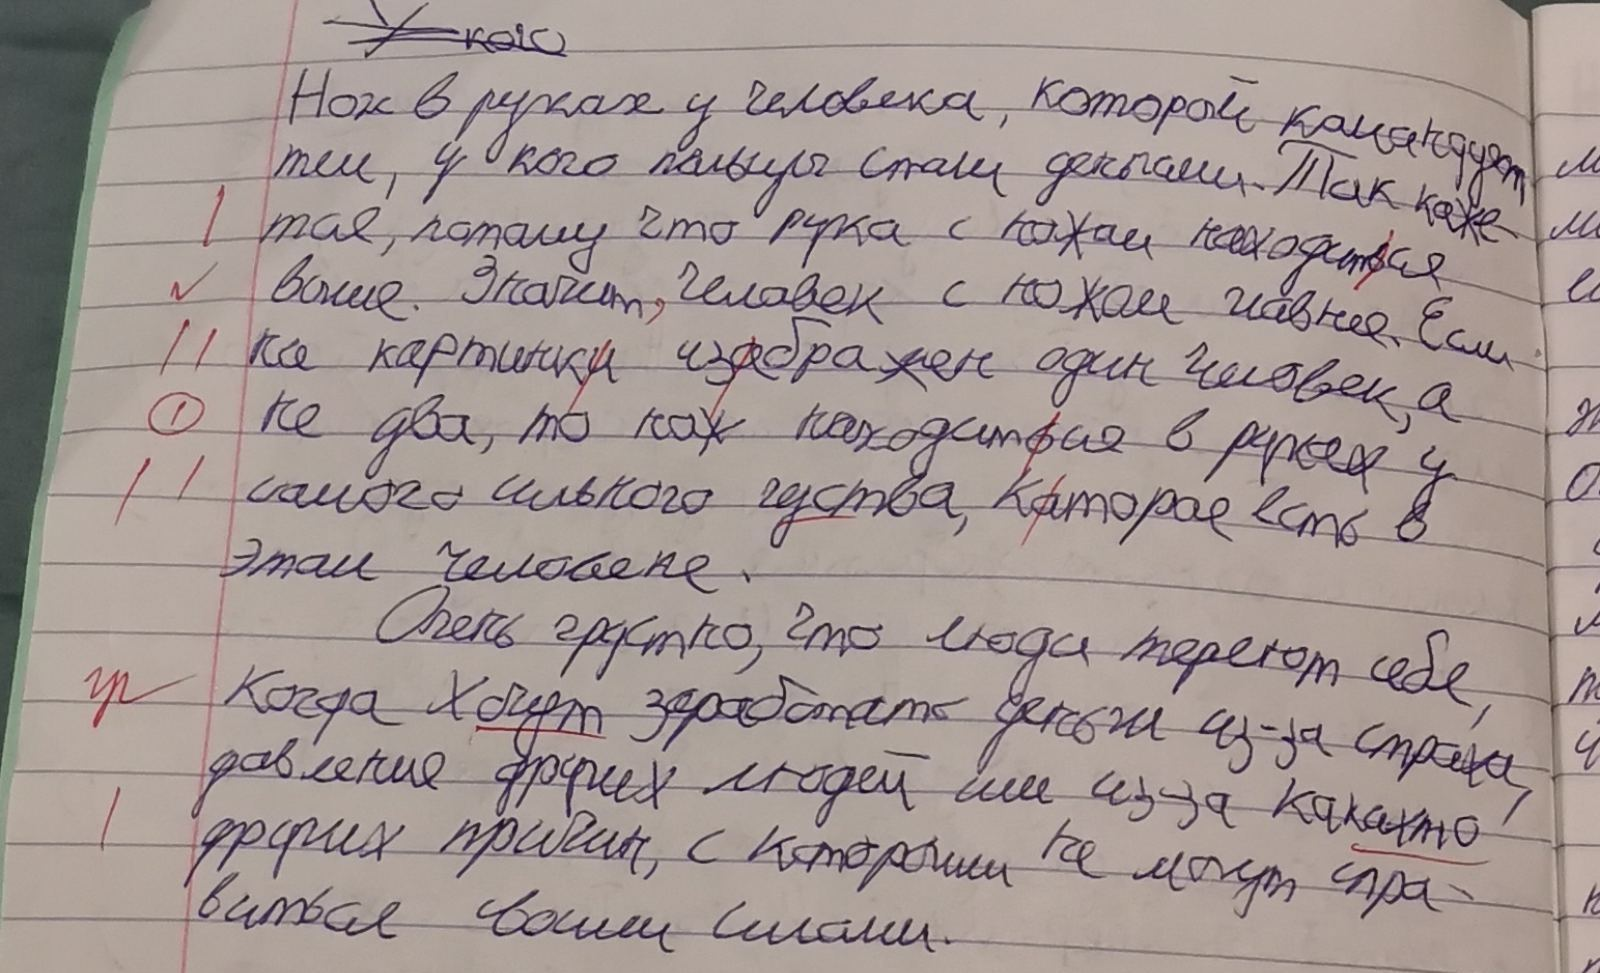 У кого
Нож в руках у человека, которой командует
тем, у кого пальцы стали деньгами. Так каже-
тся, потому что рука с ножом находиться
выше. Значит, человек с ножом главнее. Если
на картинки изабражен один человек, а
не два, то нож находиться в руках у
самого сильного густва, каторое есть в
этом человеке.
Очень грустно, что люди теряют себя,
когда хочут заработать деньги из-за страха,
давление других людей или из-за какахто
других причин, с которыми не могут спра-
виться своими силами.